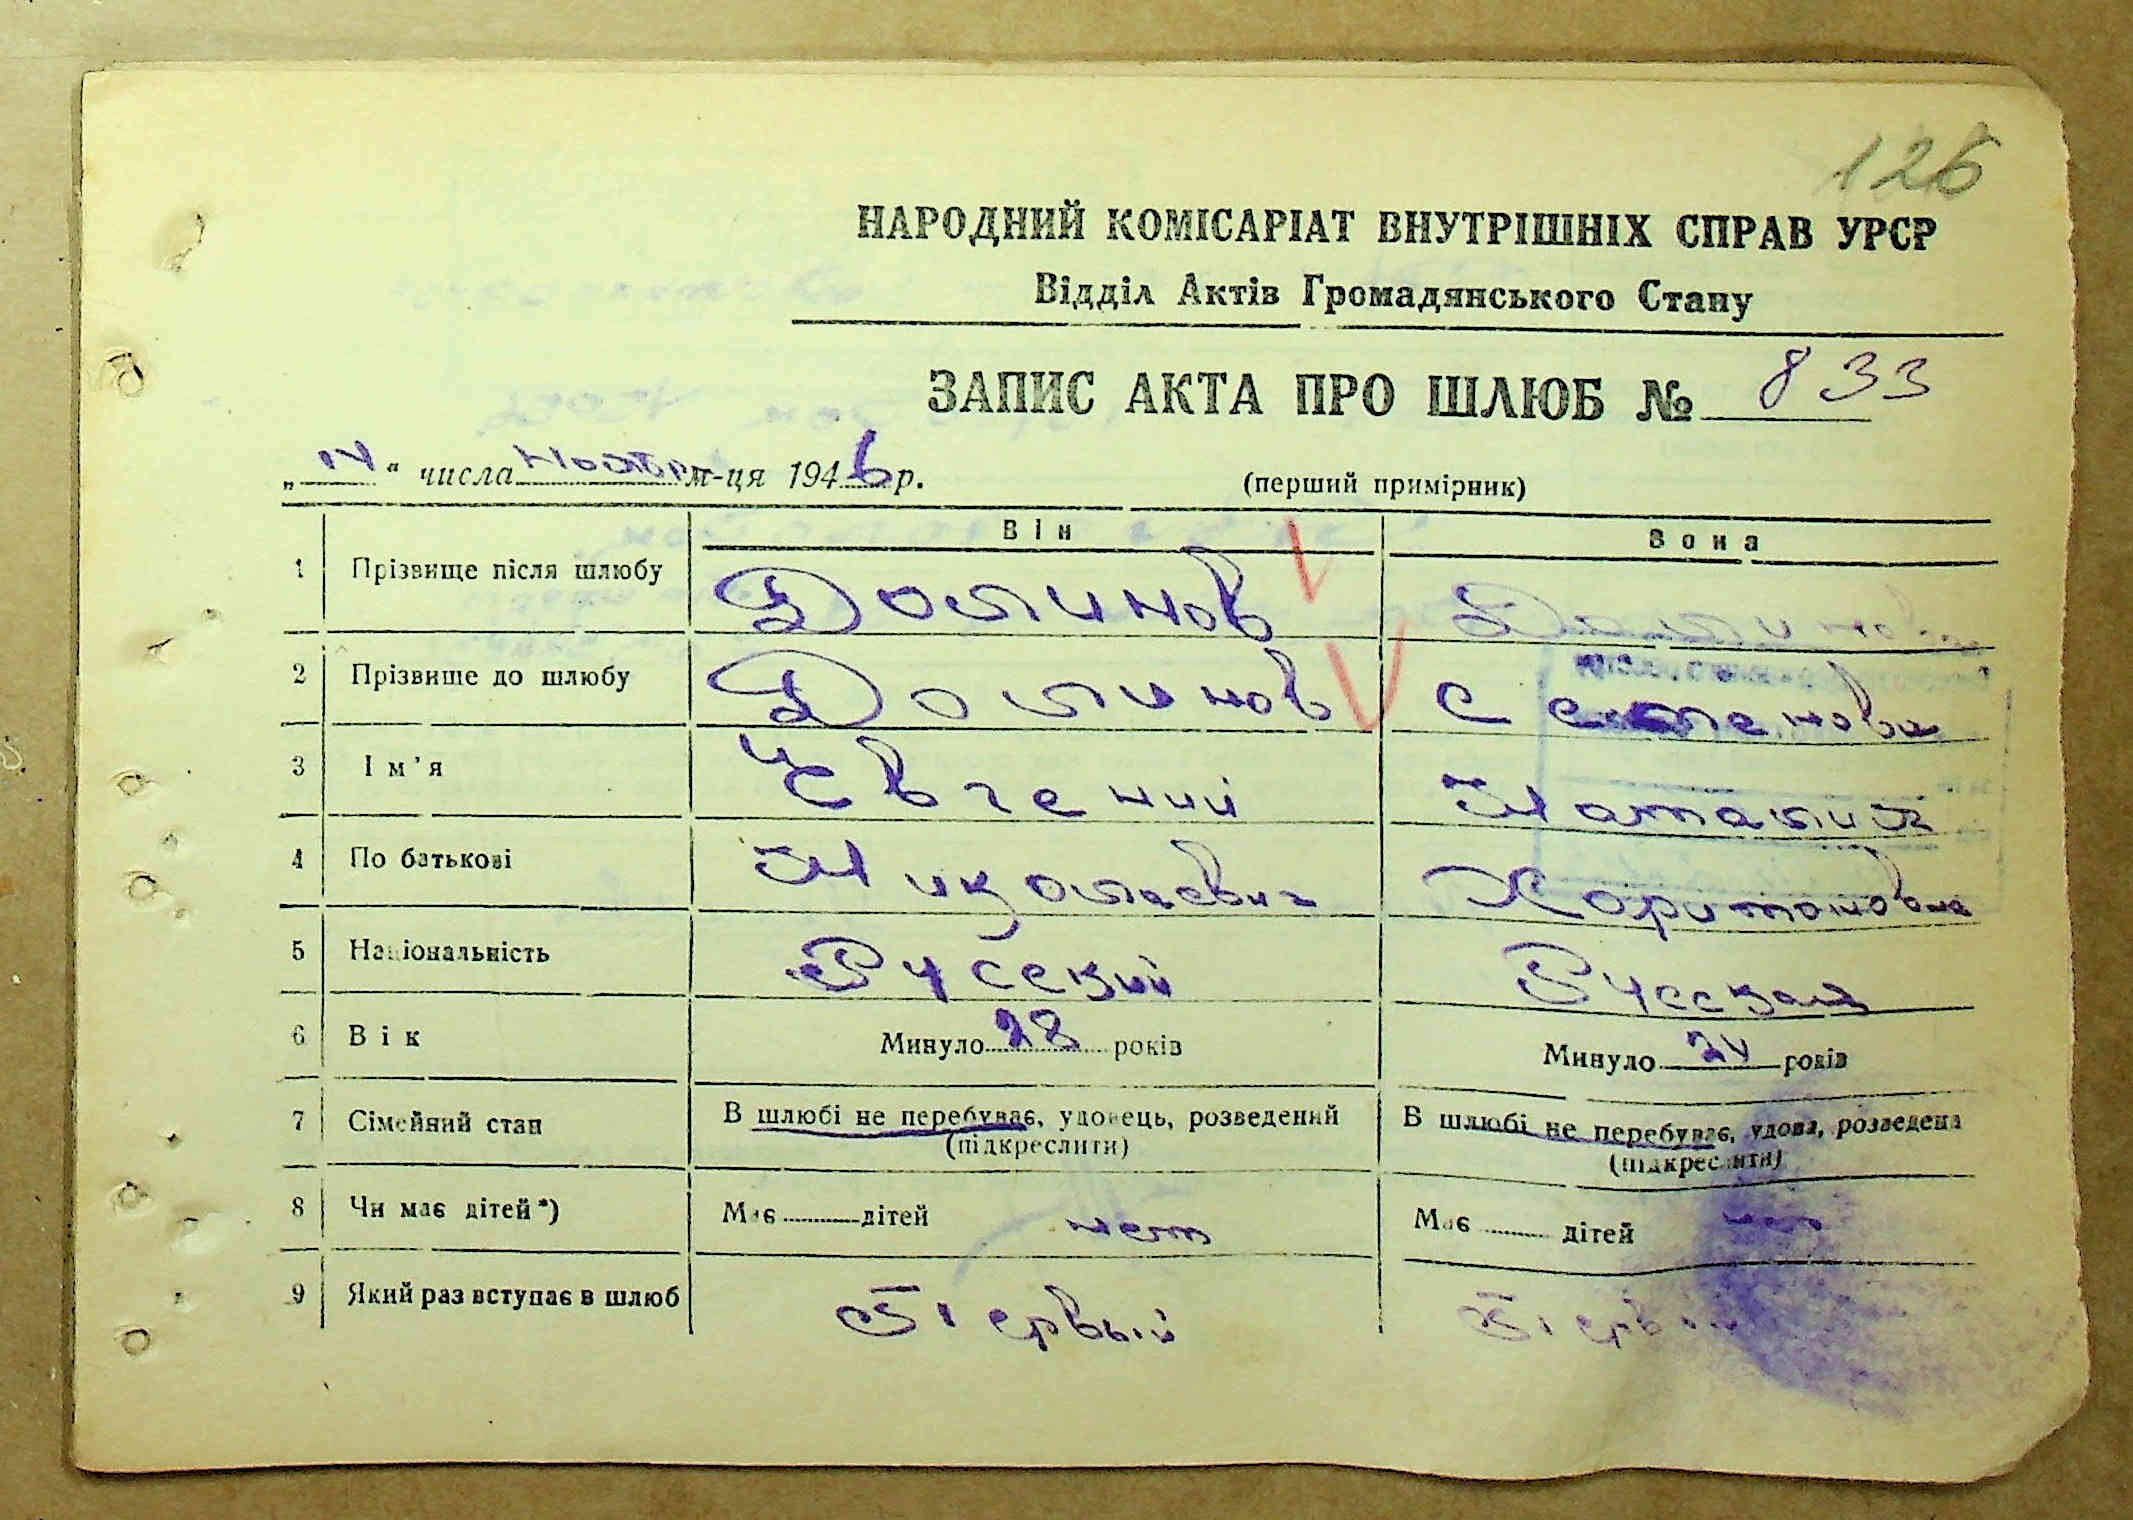 126
НАРОДНИЙ КОМІСАРІАТ ВНУТРІШНІХ СПРАВ УРСР
Відділ Актів Громадянського Стану
ЗАПИС АКТА ПРО ШЛЮБ № 833
„14“ числа ноября м-ця 1946 р. (перший примірник)
Він Вона
1 Прізвище після шлюбу Долинов Долинова
2 Прізвише до шлюбу Долинов Семенова
3 Ім'я Евгений Наталия
4 По батькові Николаевич Харитоновна
5 Національність Русский Русская
6 Вік Минуло 28 років Минуло 24 років
7 Сімейний стан В шлюбі не перебуває, удовець, розведений В шлюбі не перебуває, удова, розведена
(підкреслити) (підкреслити)
8 Чи має дітей*) Має дітей нет Має дітей нет
9 Який раз вступає в шлюб Первый Первый